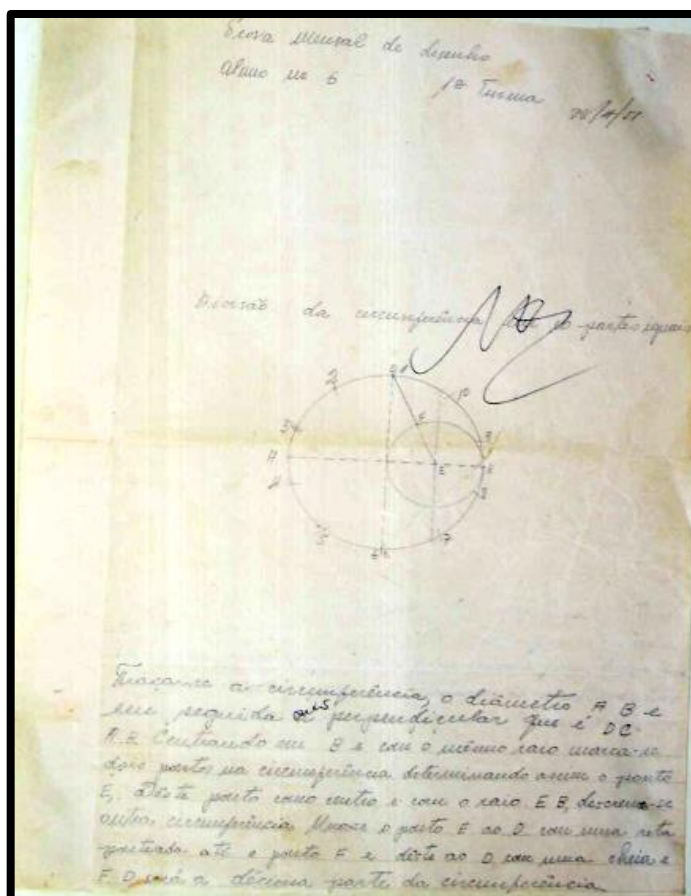 Prova mensal de desenho
Aluno nº 6 1ª Turma
Divisão da circunferência em 10 partes iguais
D 1
10
2
3
F
9
A
E
B
4
8
5
7
6
Traça-se a circunferência, o diâmetro A B e
em seguida perpendicular que é DC
A B Centrando em B e com o mesmo raio marca-se
dois pontos na circunferência determinando assim o ponto
E, dêste ponto como centro e com o raio E B, descreve-se
outra circunferência o ponto E ao D com uma reta
ponteada até o ponto F e dêste ao D com uma cheia e
F D será a décima parte da circunferência